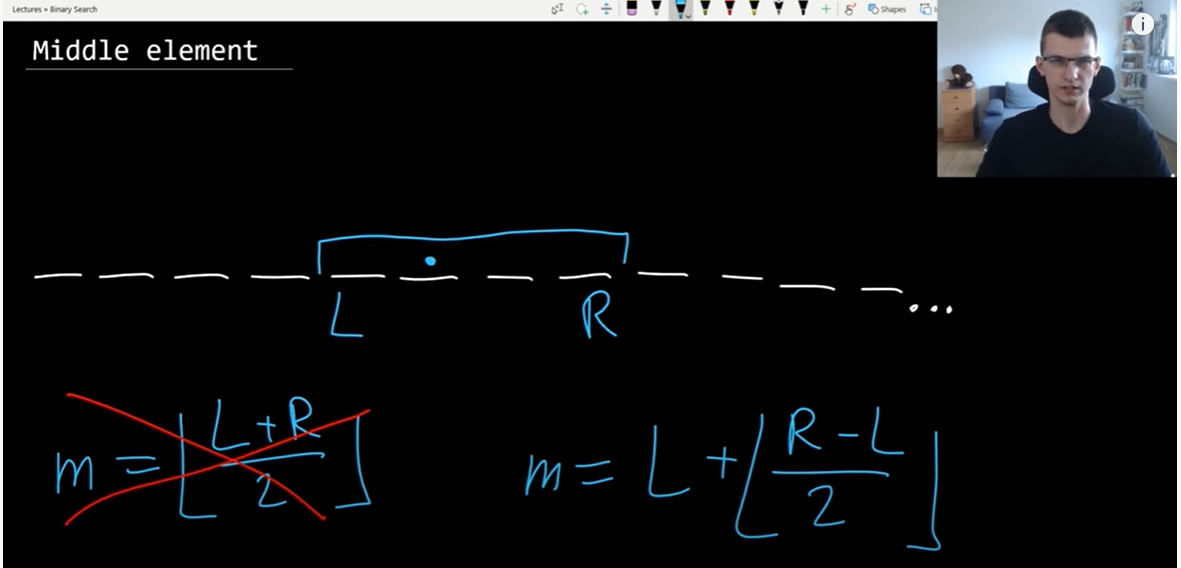 Lectures » Binary Search
Shapes
Middle element
L R
m = ⌊(L + R)/2⌋
m = L + ⌊(R - L)/2⌋